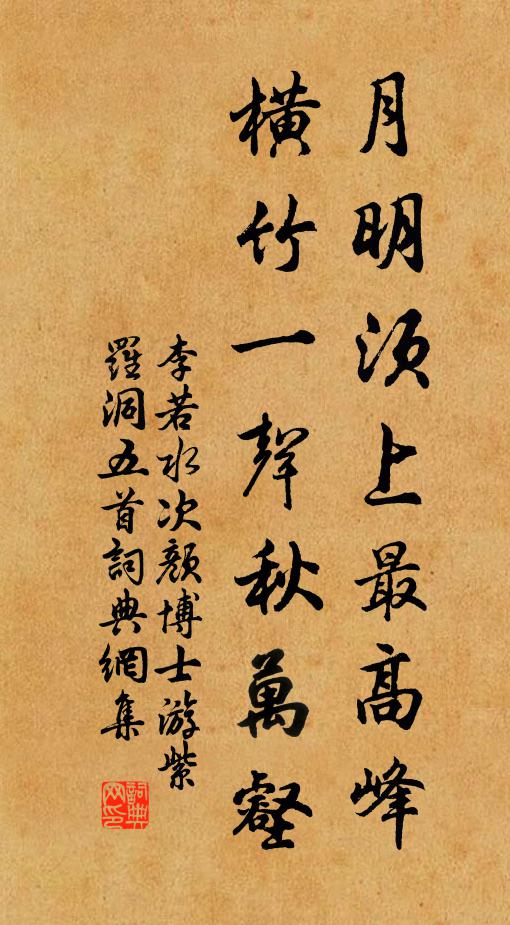 月明須上最高峰
橫竹一聲秋萬壑
李若水次顏博士游紫
羅洞五首詞典網集
詞典
网印